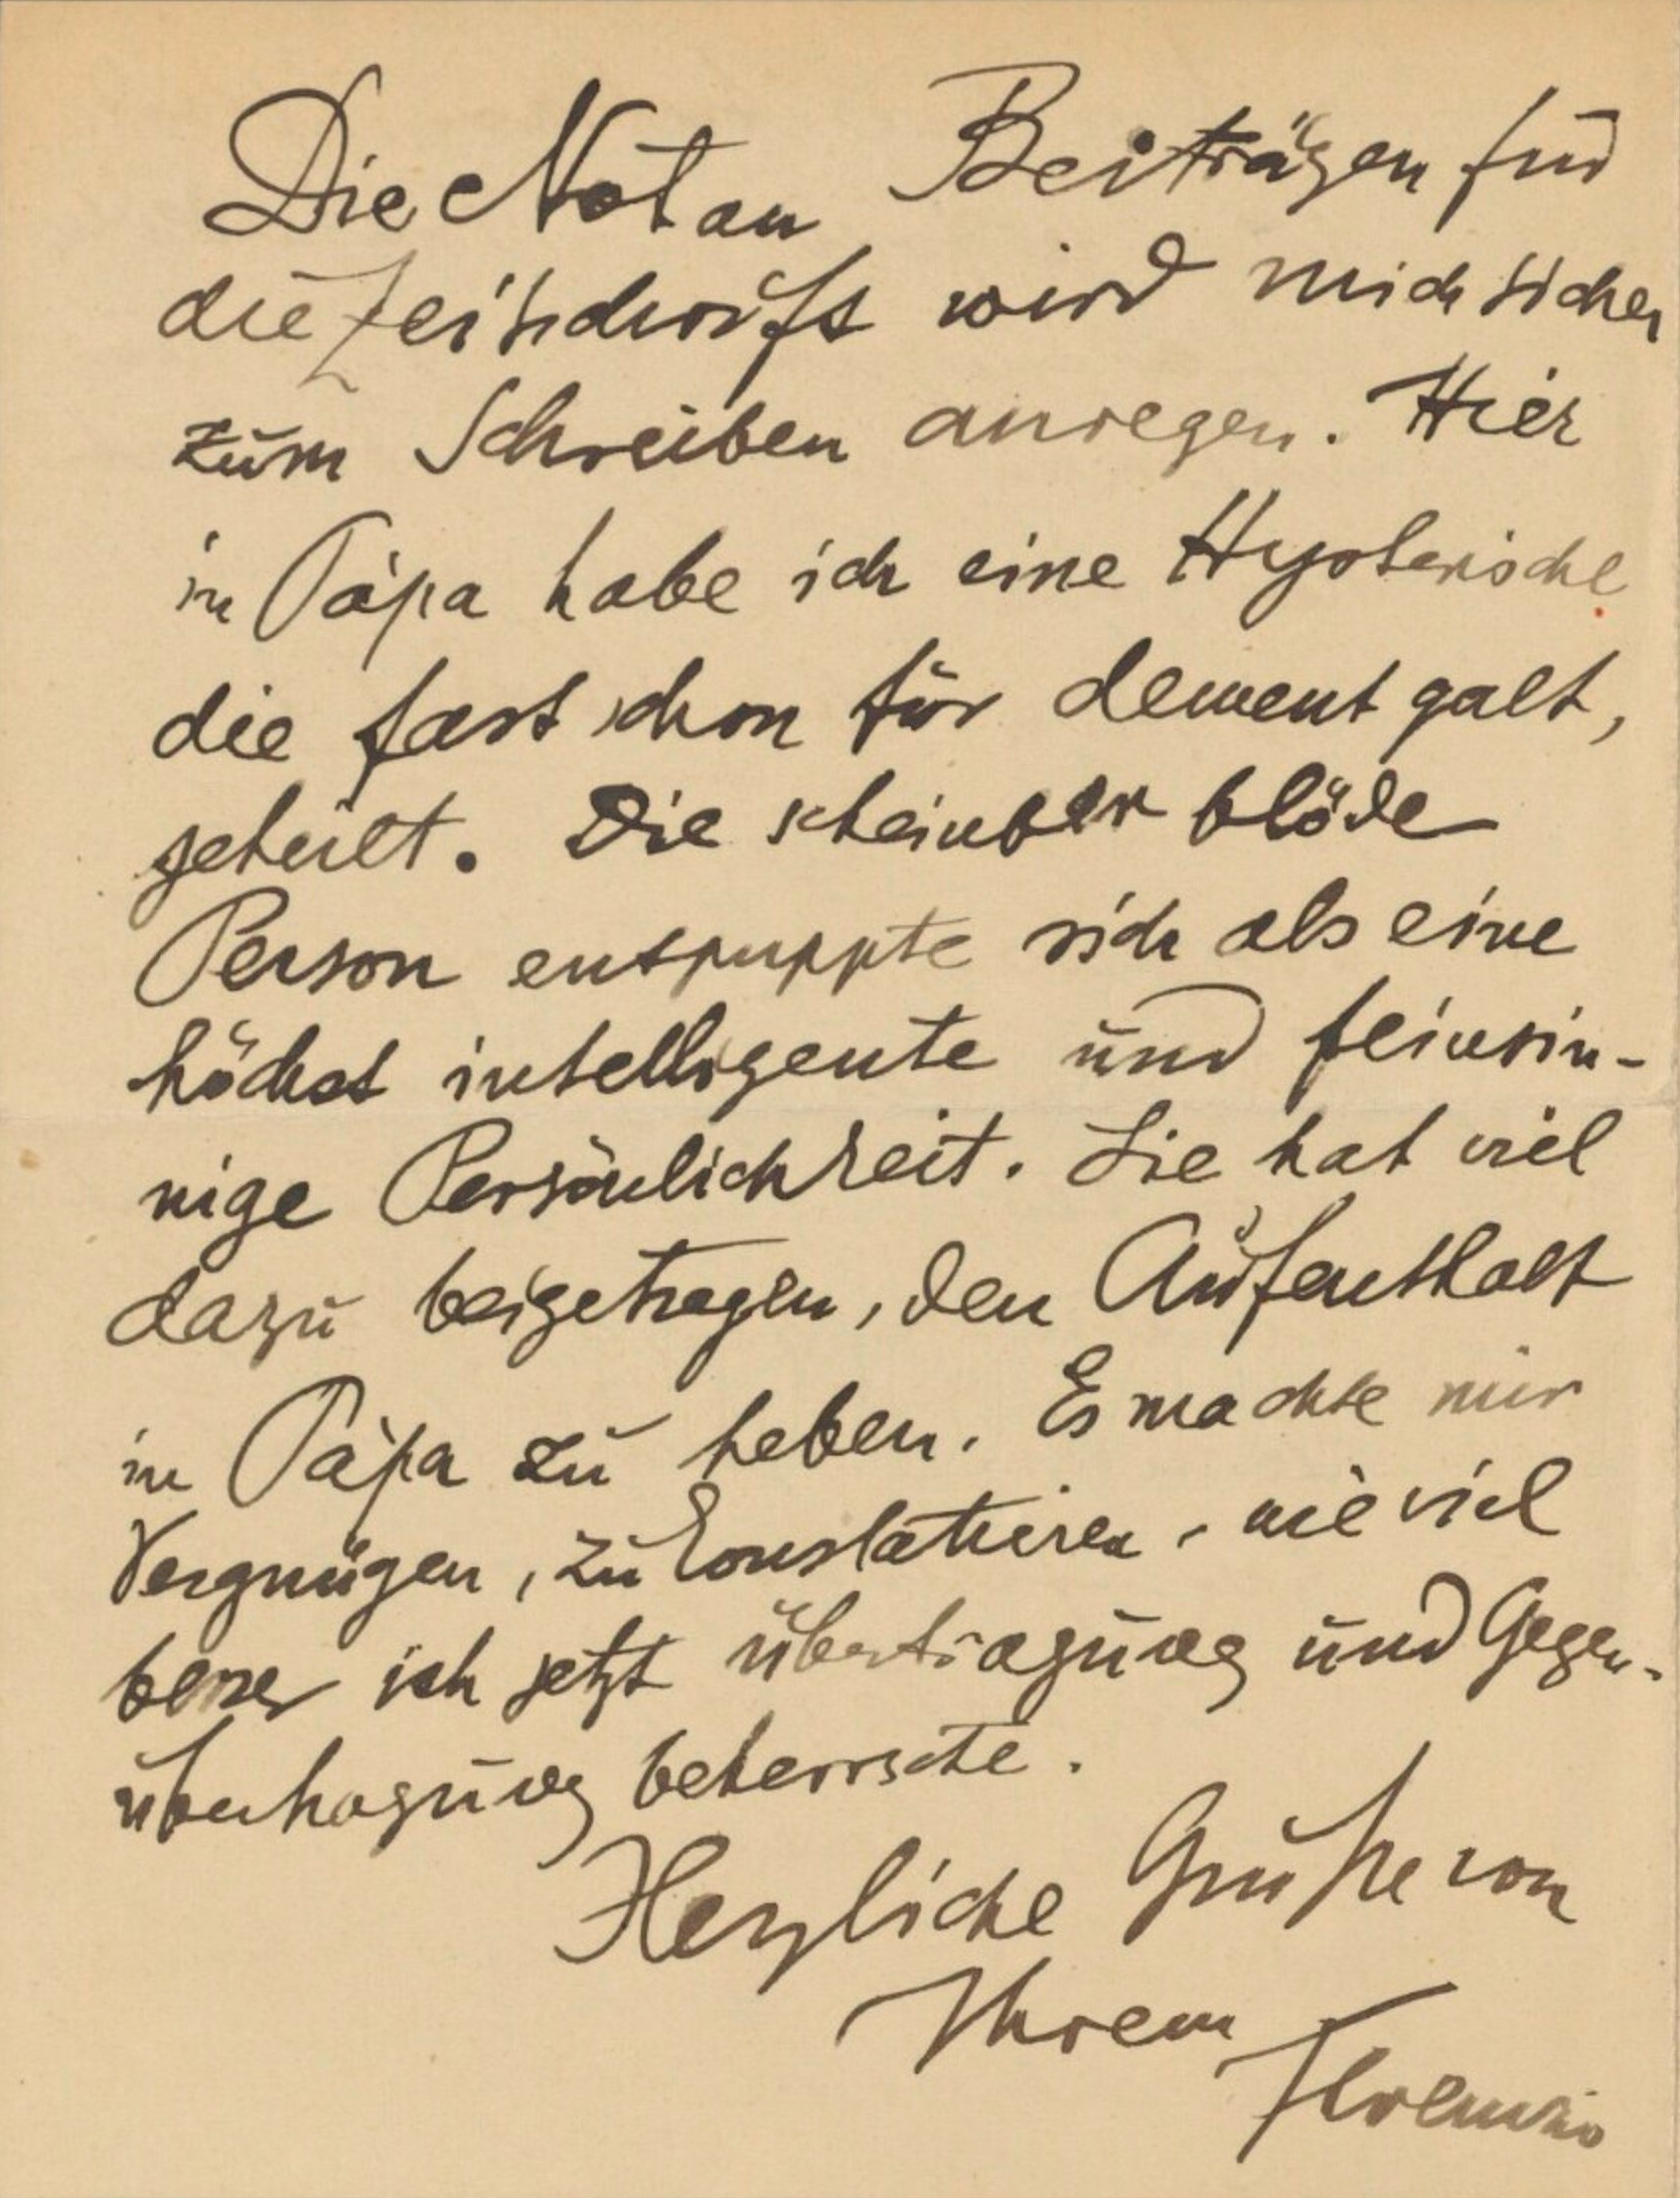 Die Not an Beiträgen für
die Zeitschrift wird mich sicher
zum Schreiben anregen. Hier
in Pápa habe ich eine Hysterische
die fast schon für dement galt,
geheilt. Die scheinbar blöde
Person entpuppte sich als eine
höchst intelligente und feinsin-
nige Persönlichkeit. Sie hat viel
dazu beigetragen, den Aufenthalt
in Pápa zu heben. Es machte mir
Vergnügen, zu konstatieren, wie viel
besser ich jetzt Übertragung und Gegen-
übertragung beherrsche.
Herzliche Grüße von
Ihrem
Ferenczi